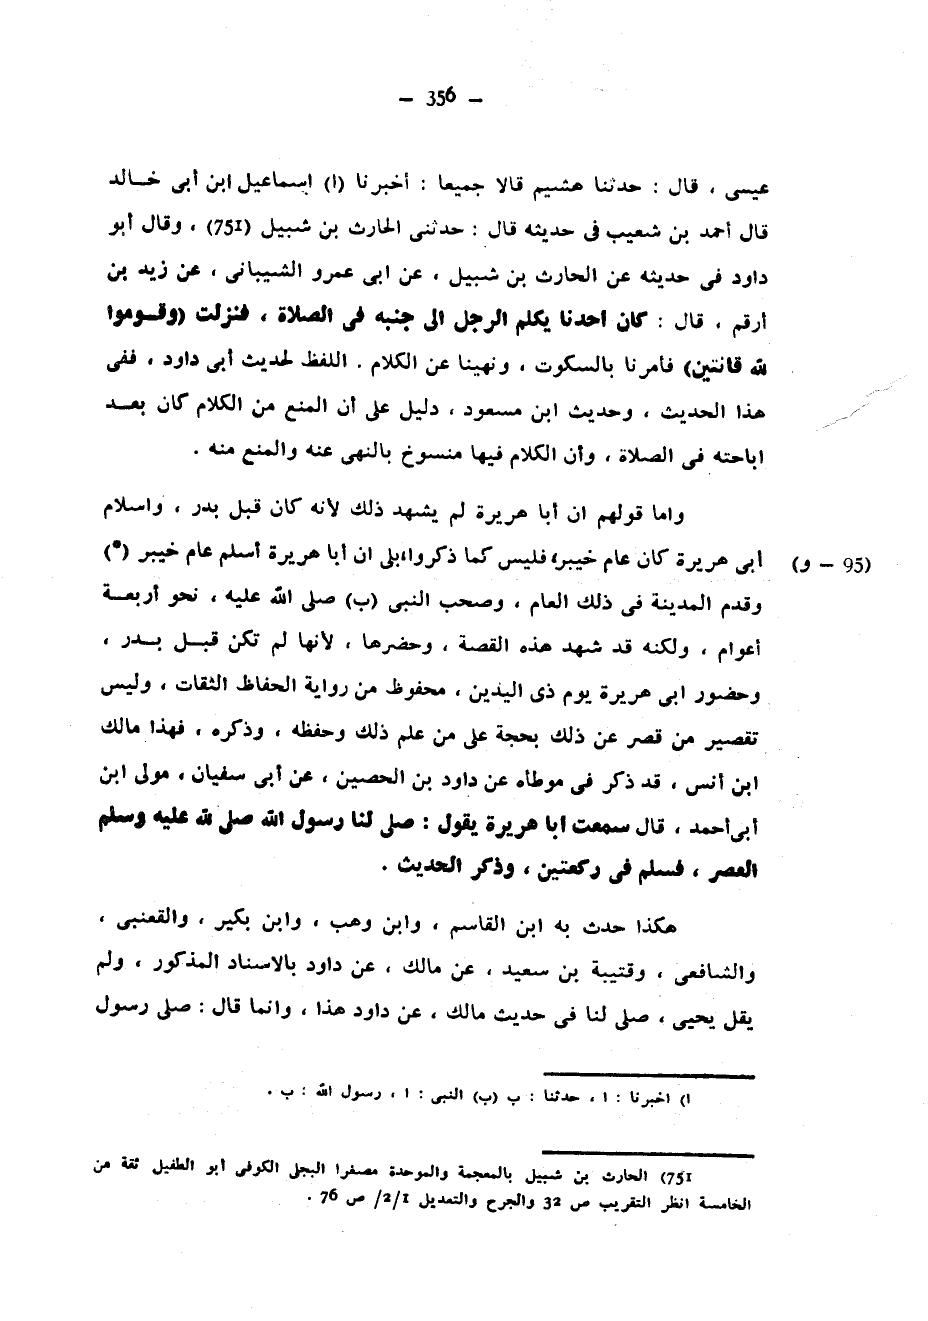 — 356 —
عيسى ، قال : حدثنا هشيم قالا جميعا : أخبرنا (ا) اسماعيل ابن أبى خالد
قال أحمد بن شعيب فى حديثه قال : حدثنى الحارث بن شبيل (751) ، وقال أبو
داود فى حديثه عن الحارث بن شبيل ، عن ابى عمرو الشيبانى ، عن زيد بن
أرقم ، قال : كان احدنا يكلم الرجل الى جنبه فى الصلاة ، فنزلت (وقوموا
لله قانتين) فأمرنا بالسكوت ، ونهينا عن الكلام . اللفظ لحديث أبى داود ، ففى
هذا الحديث ، وحديث ابن مسعود ، دليل على أن المنع من الكلام كان بعد
اباحته فى الصلاة ، وأن الكلام فيها منسوخ بالنهى عنه والمنع منه .
واما قولهم ان أبا هريرة لم يشهد ذلك لأنه كان قبل بدر ، واسلام
(95 — و) أبى هريرة كان عام خيبر، فليس كما ذكروا، بلى ان أبا هريرة أسلم عام خيبر (*)
وقدم المدينة فى ذلك العام ، وصحب النبى (ب) صلى الله عليه ، نحو أربعة
أعوام ، ولكنه قد شهد هذه القصة ، وحضرها ، لأنها لم تكن قبل بدر ،
وحضور ابى هريرة يوم ذى اليدين ، محفوظ من رواية الحفاظ الثقات ، وليس
تقصير من قصر عن ذلك بحجة على من علم ذلك وحفظه ، وذكره ، فهذا مالك
ابن أنس ، قد ذكر فى موطأه عن داود بن الحصين ، عن أبى سفيان ، مولى ابن
أبى أحمد ، قال سمعت ابا هريرة يقول : صلى لنا رسول الله صلى لله عليه وسلم
العصر ، فسلم فى ركعتين ، وذكر الحديث .
هكذا حدث به ابن القاسم ، وابن وهب ، وابن بكير ، والقعنبى ،
والشافعى ، وقتيبة بن سعيد ، عن مالك ، عن داود بالاسناد المذكور ، ولم
يقل يحيى ، صلى لنا فى حديث مالك ، عن داود هذا ، وانما قال : صلى رسول
ا) اخبرنا : ا ، حدثنا : ب (ب) النبى : ا ، رسول الله : ب .
751) الحارث بن شبيل بالمعجمة والموحدة مصغرا البجلى الكوفى أبو الطفيل ثقة من
الخامسة انظر التقريب ص 32 والجرح والتعديل 2/1/ ص 76 .